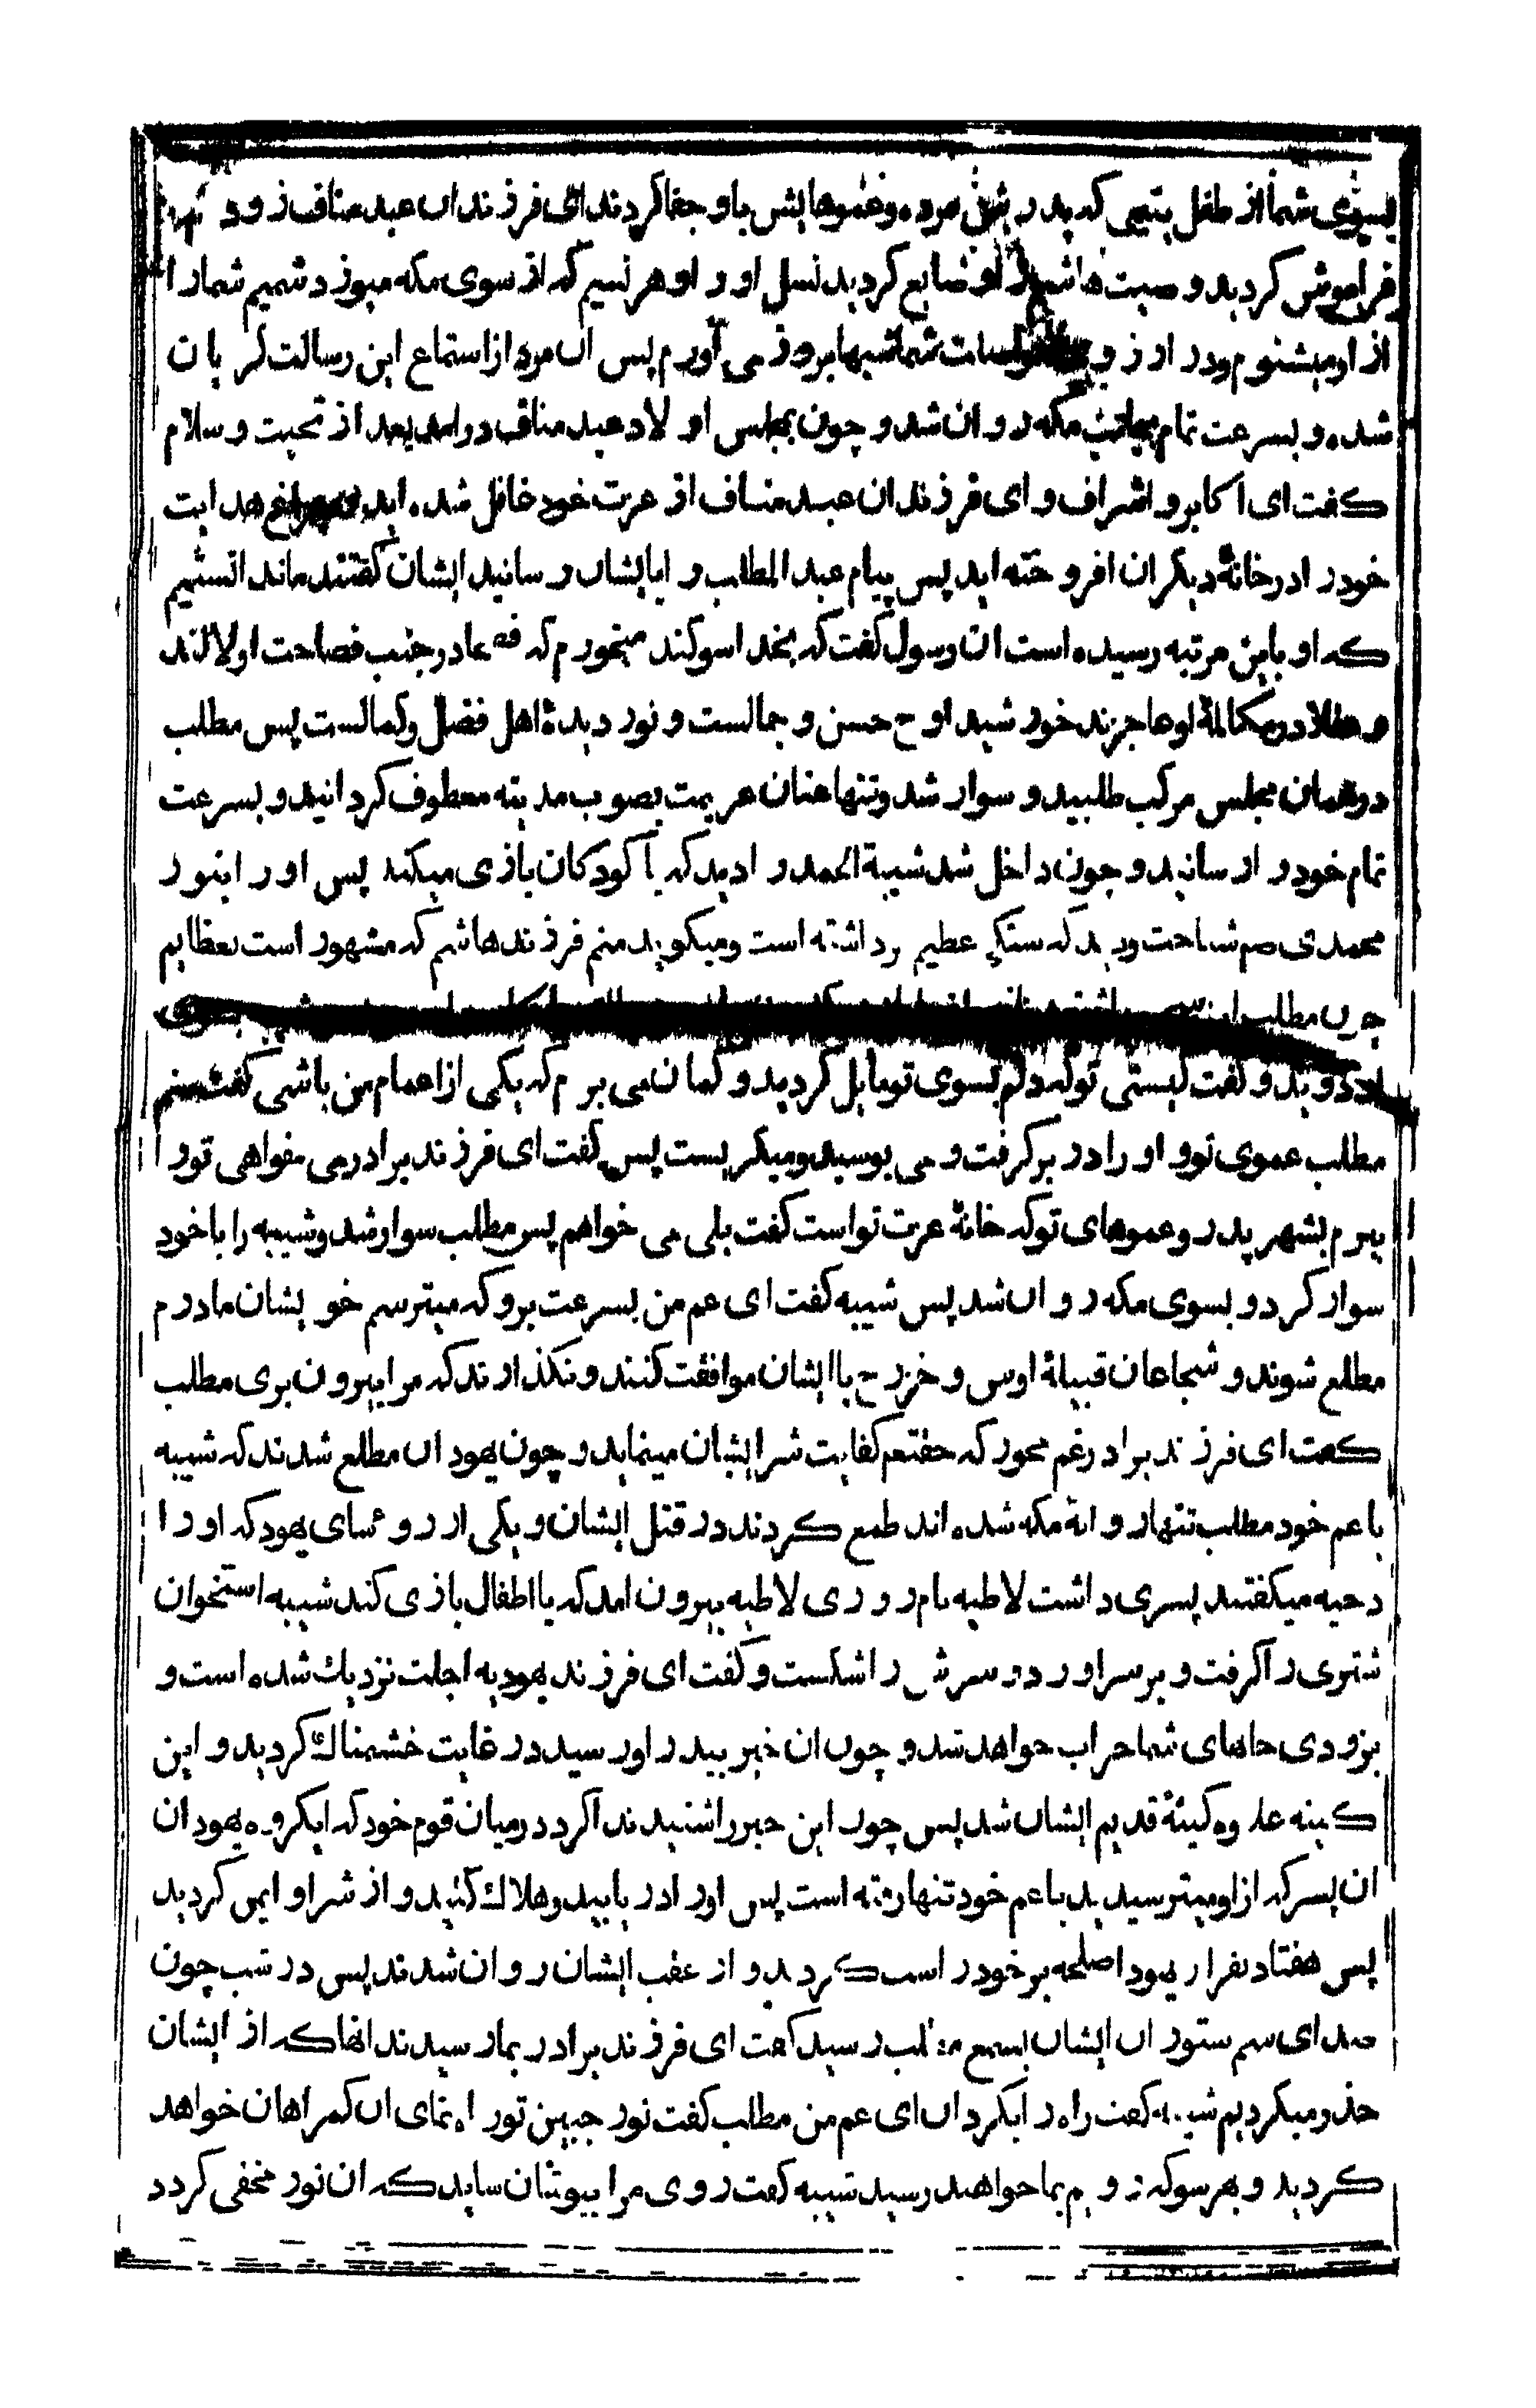 بسوی شما از طفل یتیمی که پدرش مرده و عموهایش باو جفا کردند ای فرزندان عبد مناف زود
فراموش کردید وصیت هاشم را و ضایع کردید نسل او را و هر نسیم که از سوی مکه میوزد شمیم شما را
از او میشنوم و در ارزوی مواسات شما شبها بروز می آورم پس ان مرد از استماع این رسالت کریان
شده و بسرعت تمام بجانب مکه روان شد و چون بمجلس اولاد عبد مناف درامد بعد از تحیت و سلام
کفت ای اکابر و اشراف و ای فرزندان عبد مناف از عزت خود غافل شده اید و چراغ هدایت
خود را در خانهٔ دیکران افروخته اید پس پیام عبد المطلب را بایشان رسانید ایشان کفتند ماندانستیم
که او باین مرتبه رسیده است ان رسول کفت که بخدا سوکند میخورم که فصحا در جنب فصاحت او لالند
و عقلا در مکالمهٔ او عاجزند خورشید اوج حسن و جمالست و نور دیدهٔ اهل فضل و کمالست پس مطلب
در همان مجلس مرکب طلبید و سوار شد و تنها عنان عزیمت بصوب مدینه معطوف کردانید و بسرعت
تمام خود را رسانید و چون داخل شد شیبة الحمد را دید که با کودکان بازی میکند پس او را بنور
محمدی صم شناخت و دید که سنکی عظیم برداشته است و میکوید منم فرزند هاشم که مشهور است بعظایم
چون مطلب این بسوی
او دوید و کفت کیستی تو که دلم بسوی تو مایل کردید و کمان می برم که یکی از اعمام من باشی کفت منم
مطلب عموی تو و او را در بر کرفت و می بوسید و میکریست پس کفت ای فرزند برادر می خواهی تو را
ببرم بشهر پدر و عموهای تو که خانهٔ عزت تو است کفت بلی می خواهم پس مطلب سوار شد و شیبه را با خود
سوار کرد و بسوی مکه روان شد پس شیبه کفت ای عم من بسرعت برو که میترسم خویشان مادرم
مطلع شوند و شجاعان قبیلهٔ اوس و خزرج با ایشان موافقت کنند و نکذارند که مرا بیرون بری مطلب
کفت ای فرزند برادر غم مخور که حقتعم کفایت شر ایشان مینماید و چون یهودان مطلع شدند که شیبه
با عم خود مطلب تنها روانهٔ مکه شده اند طمع کردند در قتل ایشان و یکی از روءسای یهود که او را
دحیه میکفتند پسری داشت لاطیه نام روزی لاطیه بیرون امد که با اطفال بازی کند شیبه استخوان
شتری را کرفت و بر سر او زد و سرش را شکست و کفت ای فرزند یهودیه اجلت نزدیك شده است و
بزودی خانهای شما خراب خواهد شد و چون ان خبر بپدر او رسید در غایت خشمناك کردید و این
کینه علاوه کینهٔ قدیم ایشان شد پس چون این خبر را شنید ندا کرد در میان قوم خود که ایکروه یهودان
ان پسر که از او میترسیدید با عم خود تنها رفته است پس او را دریابید و هلاك کنید و از شر او ایمن کردید
پس هفتاد نفر از یهود اصلحه بر خود راست کردید و از عقب ایشان روان شدند پس در شب چون
صدای سم ستوران ایشان بسمع مطلب رسید کفت ای فرزند برادر بما رسیدند انها که از ایشان
حذر میکردیم شیبه کفت راه را بکردان ای عم من مطلب کفت نور جبین تو راهنمای ان کمراهان خواهد
کردید و بهر سو که رویم بما خواهند رسید شیبه کفت روی مرا بپوشان شاید که ان نور مخفی کردد